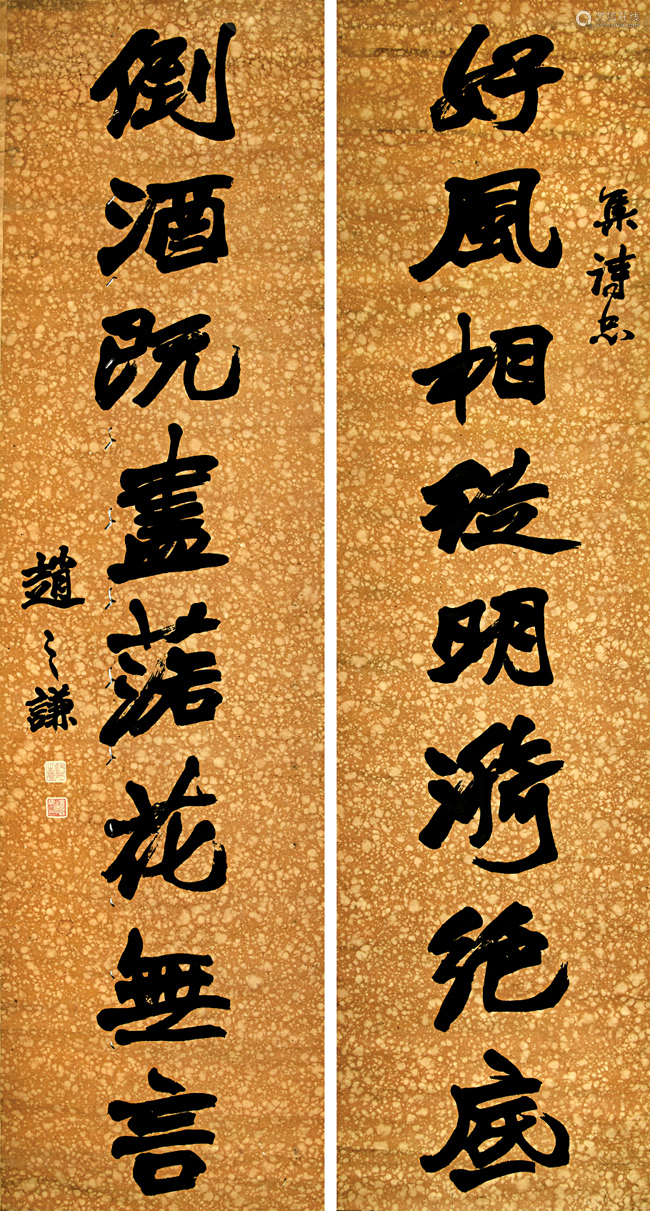 集詩品
好風相從明漪絕底
倒酒既盡落花無言
趙之謙